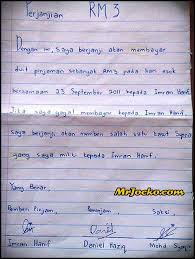 Perjanjian RM 3
Dengan ini, saya berjanji akan membayar
duit pinjaman sebanyak RM3 pada hari esok
bersamaan 23 September 2011 kepada Imran Hanif.
Jika saya gagal membayar kepada Imran Hanif
saya berjanji akan memberi salah satu harta
yang saya miliki kepada Imran Hanif.
Yang Benar,
MrJocko.com
Pemberi Pinjam, Peminjam, Saksi,
Imran Hanif Daniel Mohd